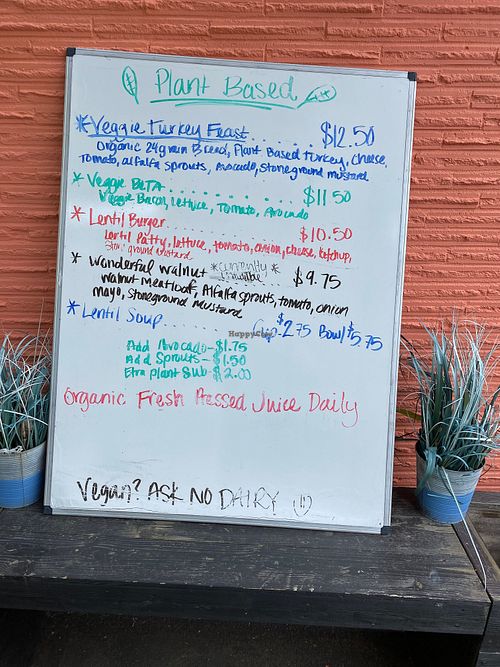 Plant Based
*Veggie Turkey Feast..... $12.50
Organic 24grain Bread, Plant Based turkey, cheese,
Tomato, alfalfa sprouts, Avocado, Stoneground mustard
* Veggie BLTA........ $11.50
Veggie Bacon, Lettuce, Tomato, Avocado
* Lentil Burger........ $10.50
Lentil Patty, lettuce, tomato, onion, cheese, ketchup,
Stone ground mustard
* Wonderful walnut *currently $9.75
walnut meatloaf, Alfalfa sprouts, tomato, onion
mayo, Stoneground mustard
* Lentil Soup....... Cup $2.75 Bowl $5.75
HappyCow
Add Avocado-$1.75
Add Sprouts-$1.50
Etra plant sub-$2.00
Organic Fresh Pressed Juice Daily
Vegan? ASK NO DAIRY :)